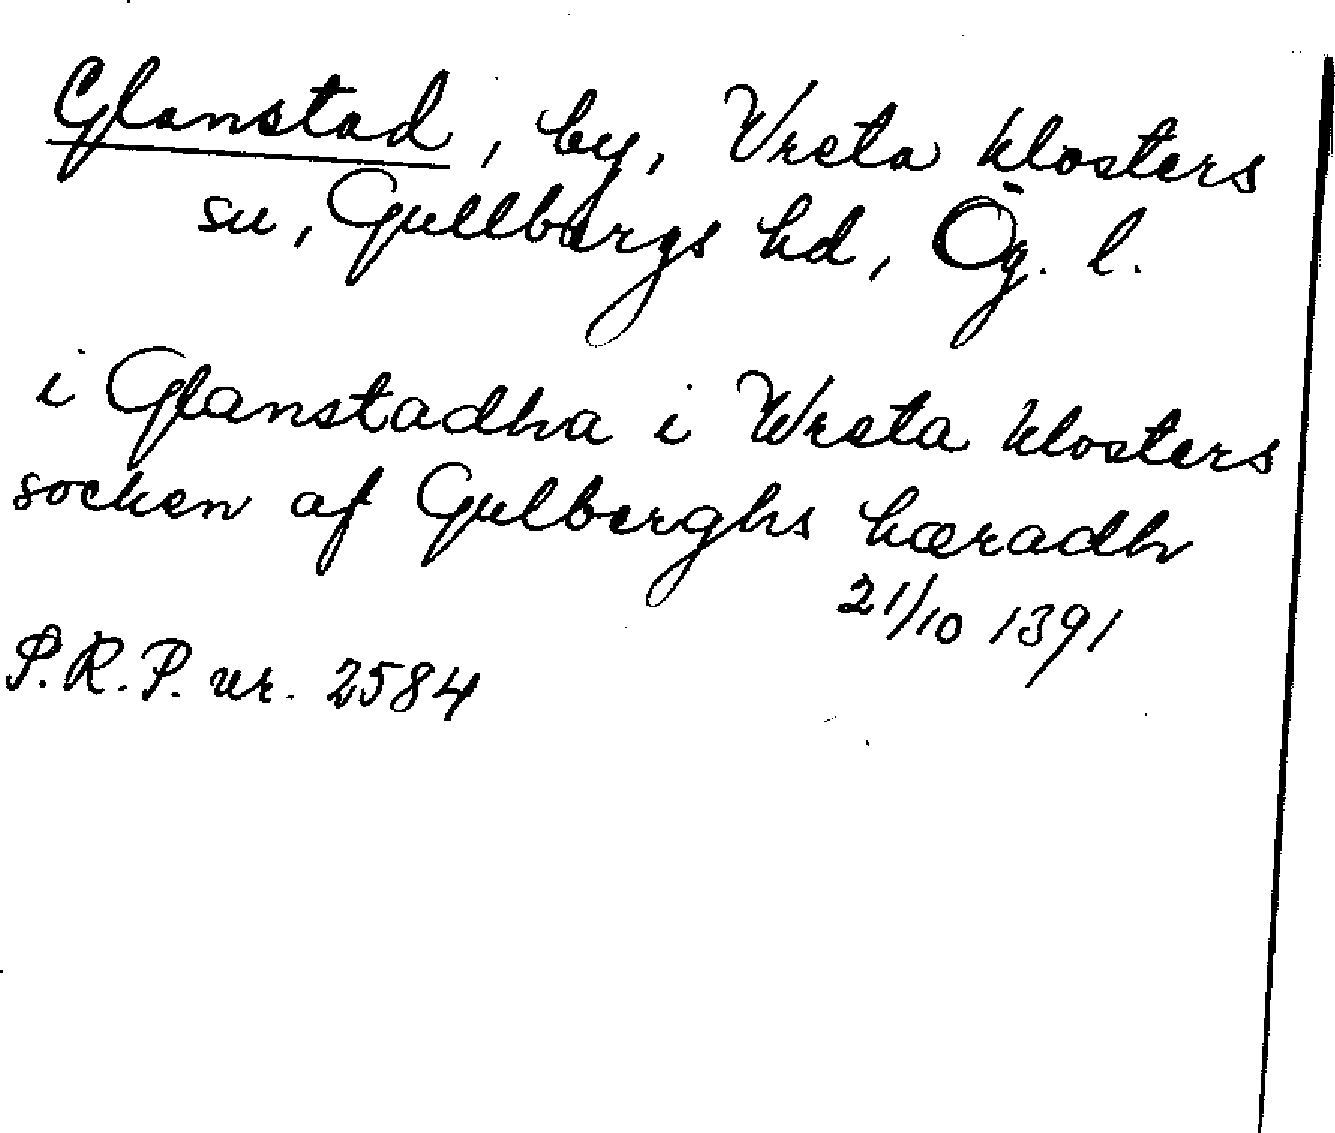 Glanstad, by, Vreta klosters
sn, Gullbergs hd, Ög. l.
i Glanstadha i Wreta klosters
socken af Gulberghs hæradh
21/10 1391
S.R.P. nr. 2584